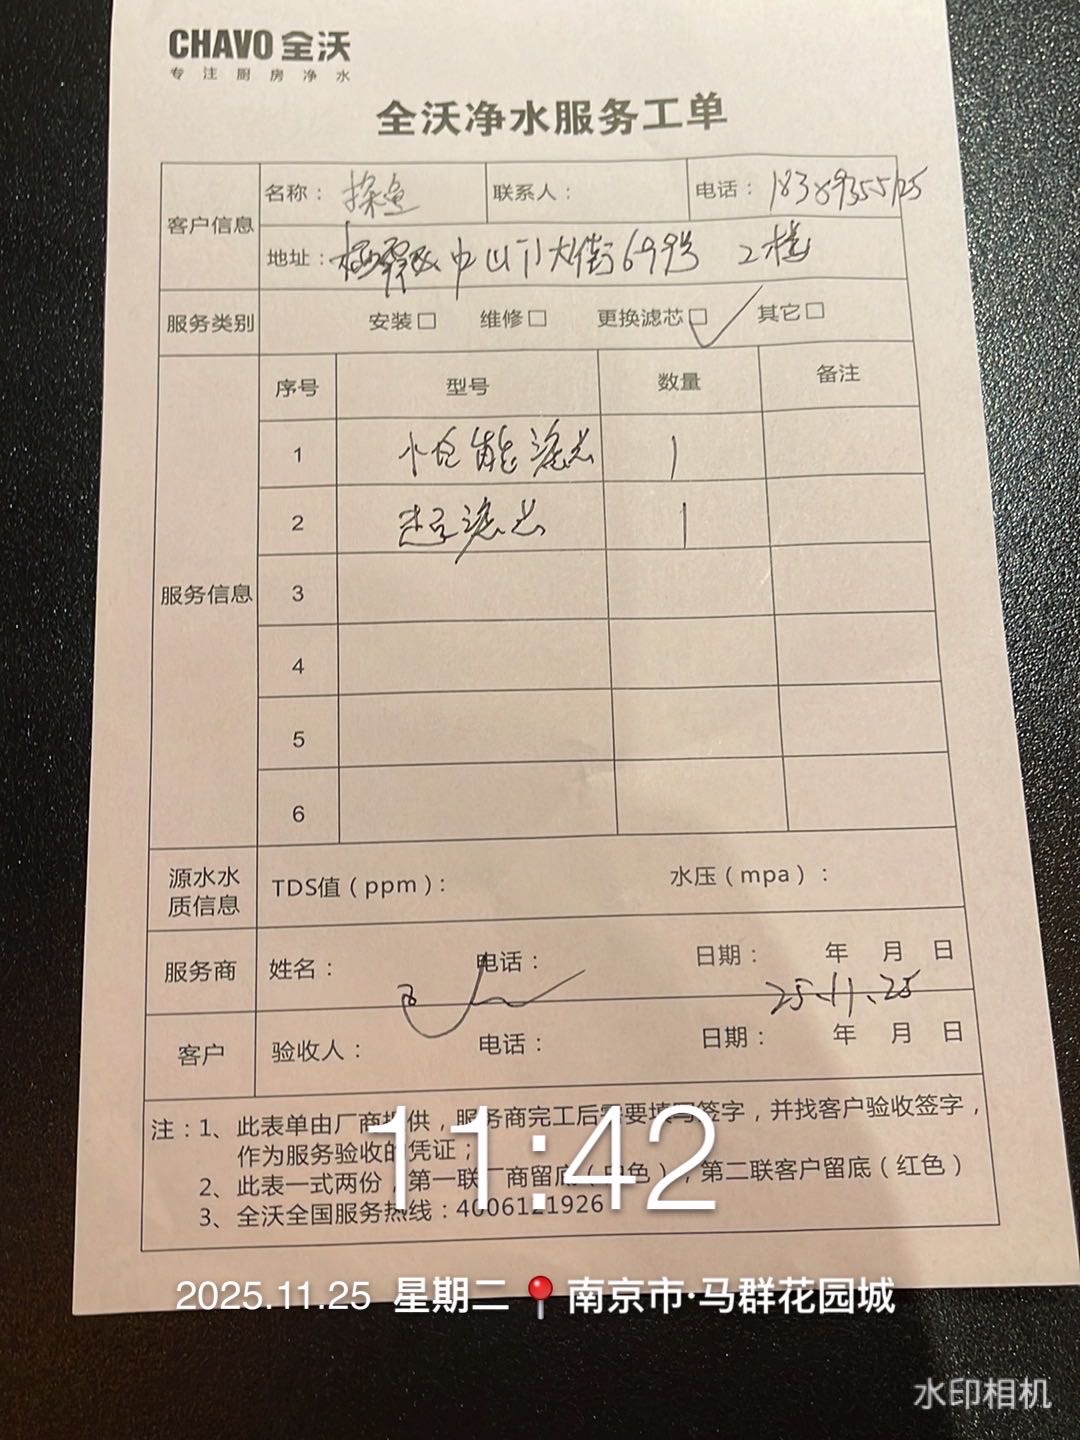 CHAVO 全沃
专注厨房净水
全沃净水服务工单
客户信息 名称：探鱼 联系人： 电话：
地址： 中山门大街699号 2楼
服务类别 安装□ 维修□ 更换滤芯□ ✓ 其它□
服务信息 序号 型号 数量 备注
1 滤芯 1
2 滤芯 1
3
4
5
6
源水水质信息 TDS值（ppm）： 水压（mpa）：
服务商 姓名： 电话： 日期： 年 月 日
25.11.25
客户 验收人： 电话： 日期： 年 月 日
注：1、此表单由厂商提供，服务商完工后需要填写签字，并找客户验收签字，
作为服务验收的凭证；
2、此表一式两份，第一联厂商留底（白色），第二联客户留底（红色）
3、全沃全国服务热线：4006121926
11:42
2025.11.25 星期二 南京市·马群花园城
水印相机